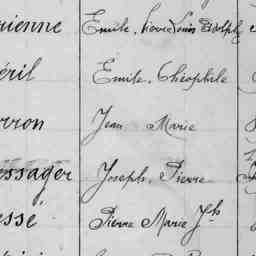 rienne Emile, Pierre Louis Adolphe
éril Emile, Théophile
rron Jean Marie
essager Joseph, Pierre
essé Pierre Marie Jh